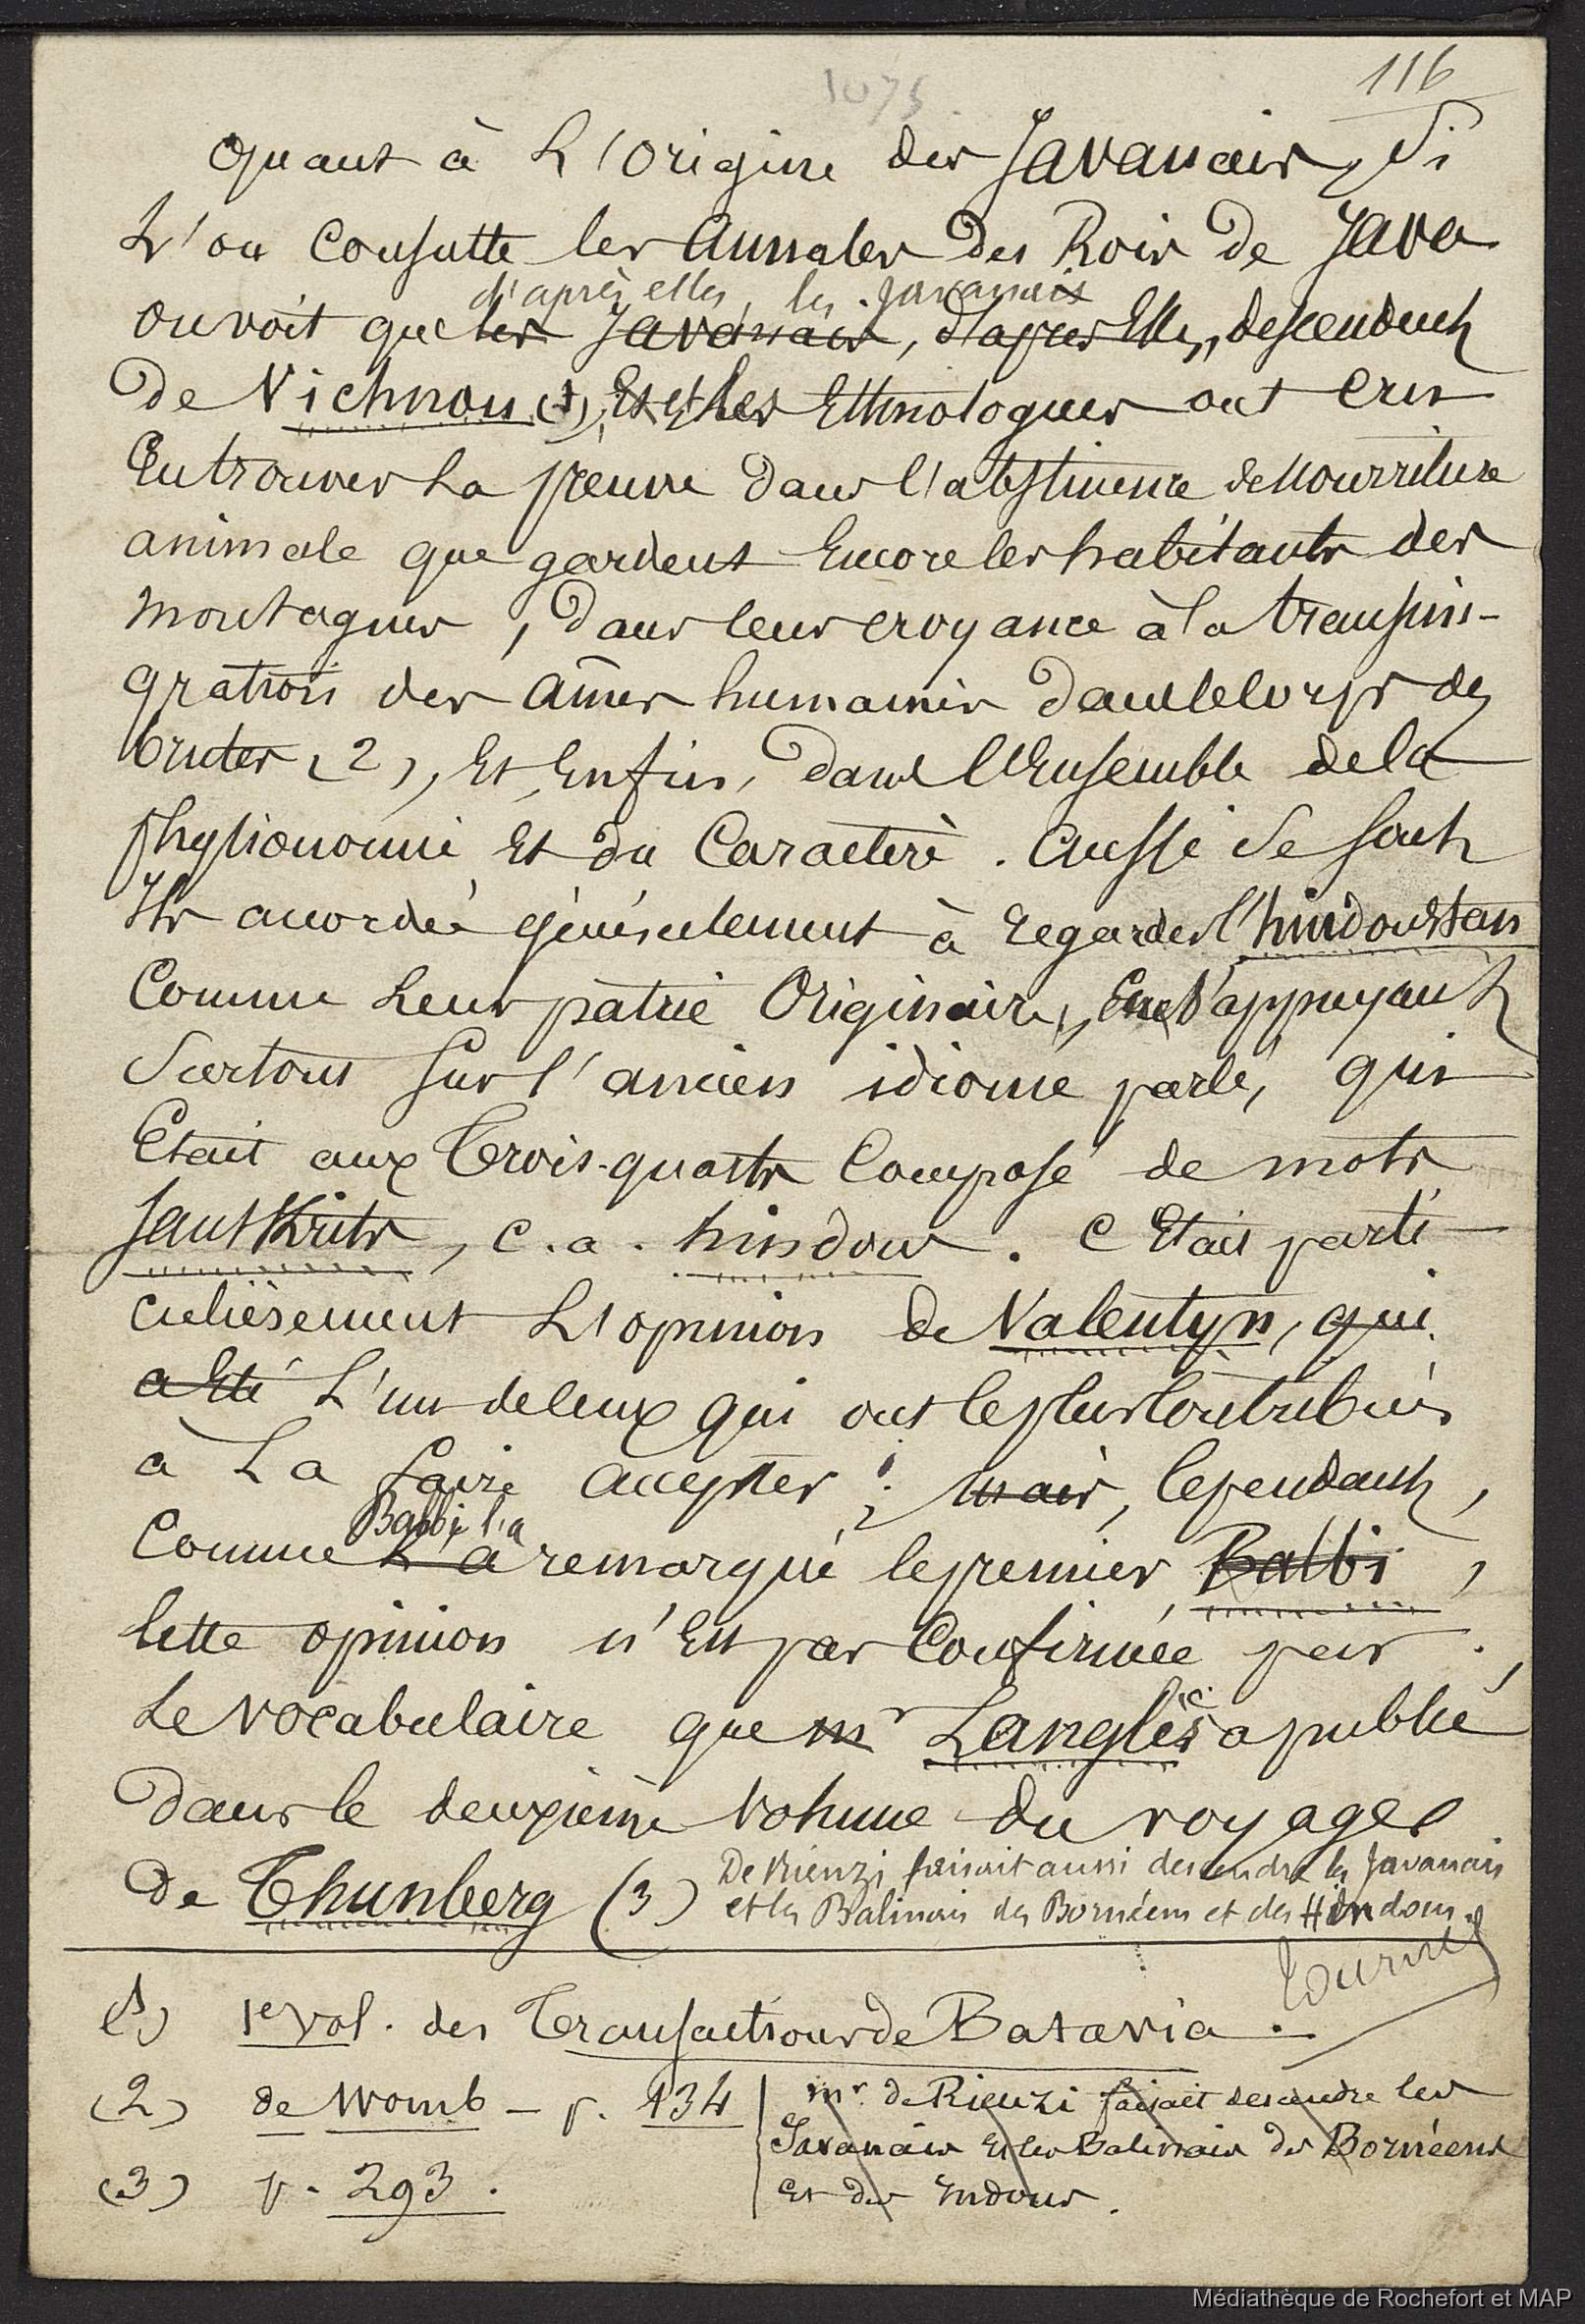 116
1075
Quant à L'origine des Javanais, Si
L'on Consulte les Annales des Rois de Java
d'après elles, les Javanais
on voit que les Javanais, d'après Elles, descendent
de Vichnou (1), Et et Les Ethnologues ont cru
En trouver La preuve dans l'abstinence de Nourriture
animale que gardent Encore les habitants des
montagnes, Dans leur croyance à la transmi-
gration des âmes humaines dans le corps des
brutes (2), Et Enfin, dans l'Ensemble de la
physionomie Et du Caractère. Aussi Se sont
Ils accordés généralement à Regarder l'hindoustan
Comme Leur patrie Originaire, En s'appuyant
Surtout sur l'ancien idiome parlé, qui
Etait aux Trois-quarts Composé de mots
Sanskrits, c. a. hindous. C'Etait parti
culièrement L'opinion de Valentyn, qui
a Eté L'un de ceux qui ont le plus Contribués
à La faire accepter ; mais, Cependant,
Balbi l'a
Comme L'a remarqué le premier Balbi,
Cette opinion n'Est pas Confirmée par
Le vocabulaire que Mr Langlès a publié
Dans le deuxième Volume du voyage
de Thunberg (3) De Rienzi faisait aussi descendre les Javanais
et les Balinais des Bornéens et des Hindous.
tournez
(1) 1er vol. des Transactions de Batavia.
(2) de Womb – p. 134
(3) p. 293.
Mr. de Rienzi faisait descendre les
Javanais Et les Balinais des Bornéens
Et des Indous.
Médiathèque de Rochefort et MAP